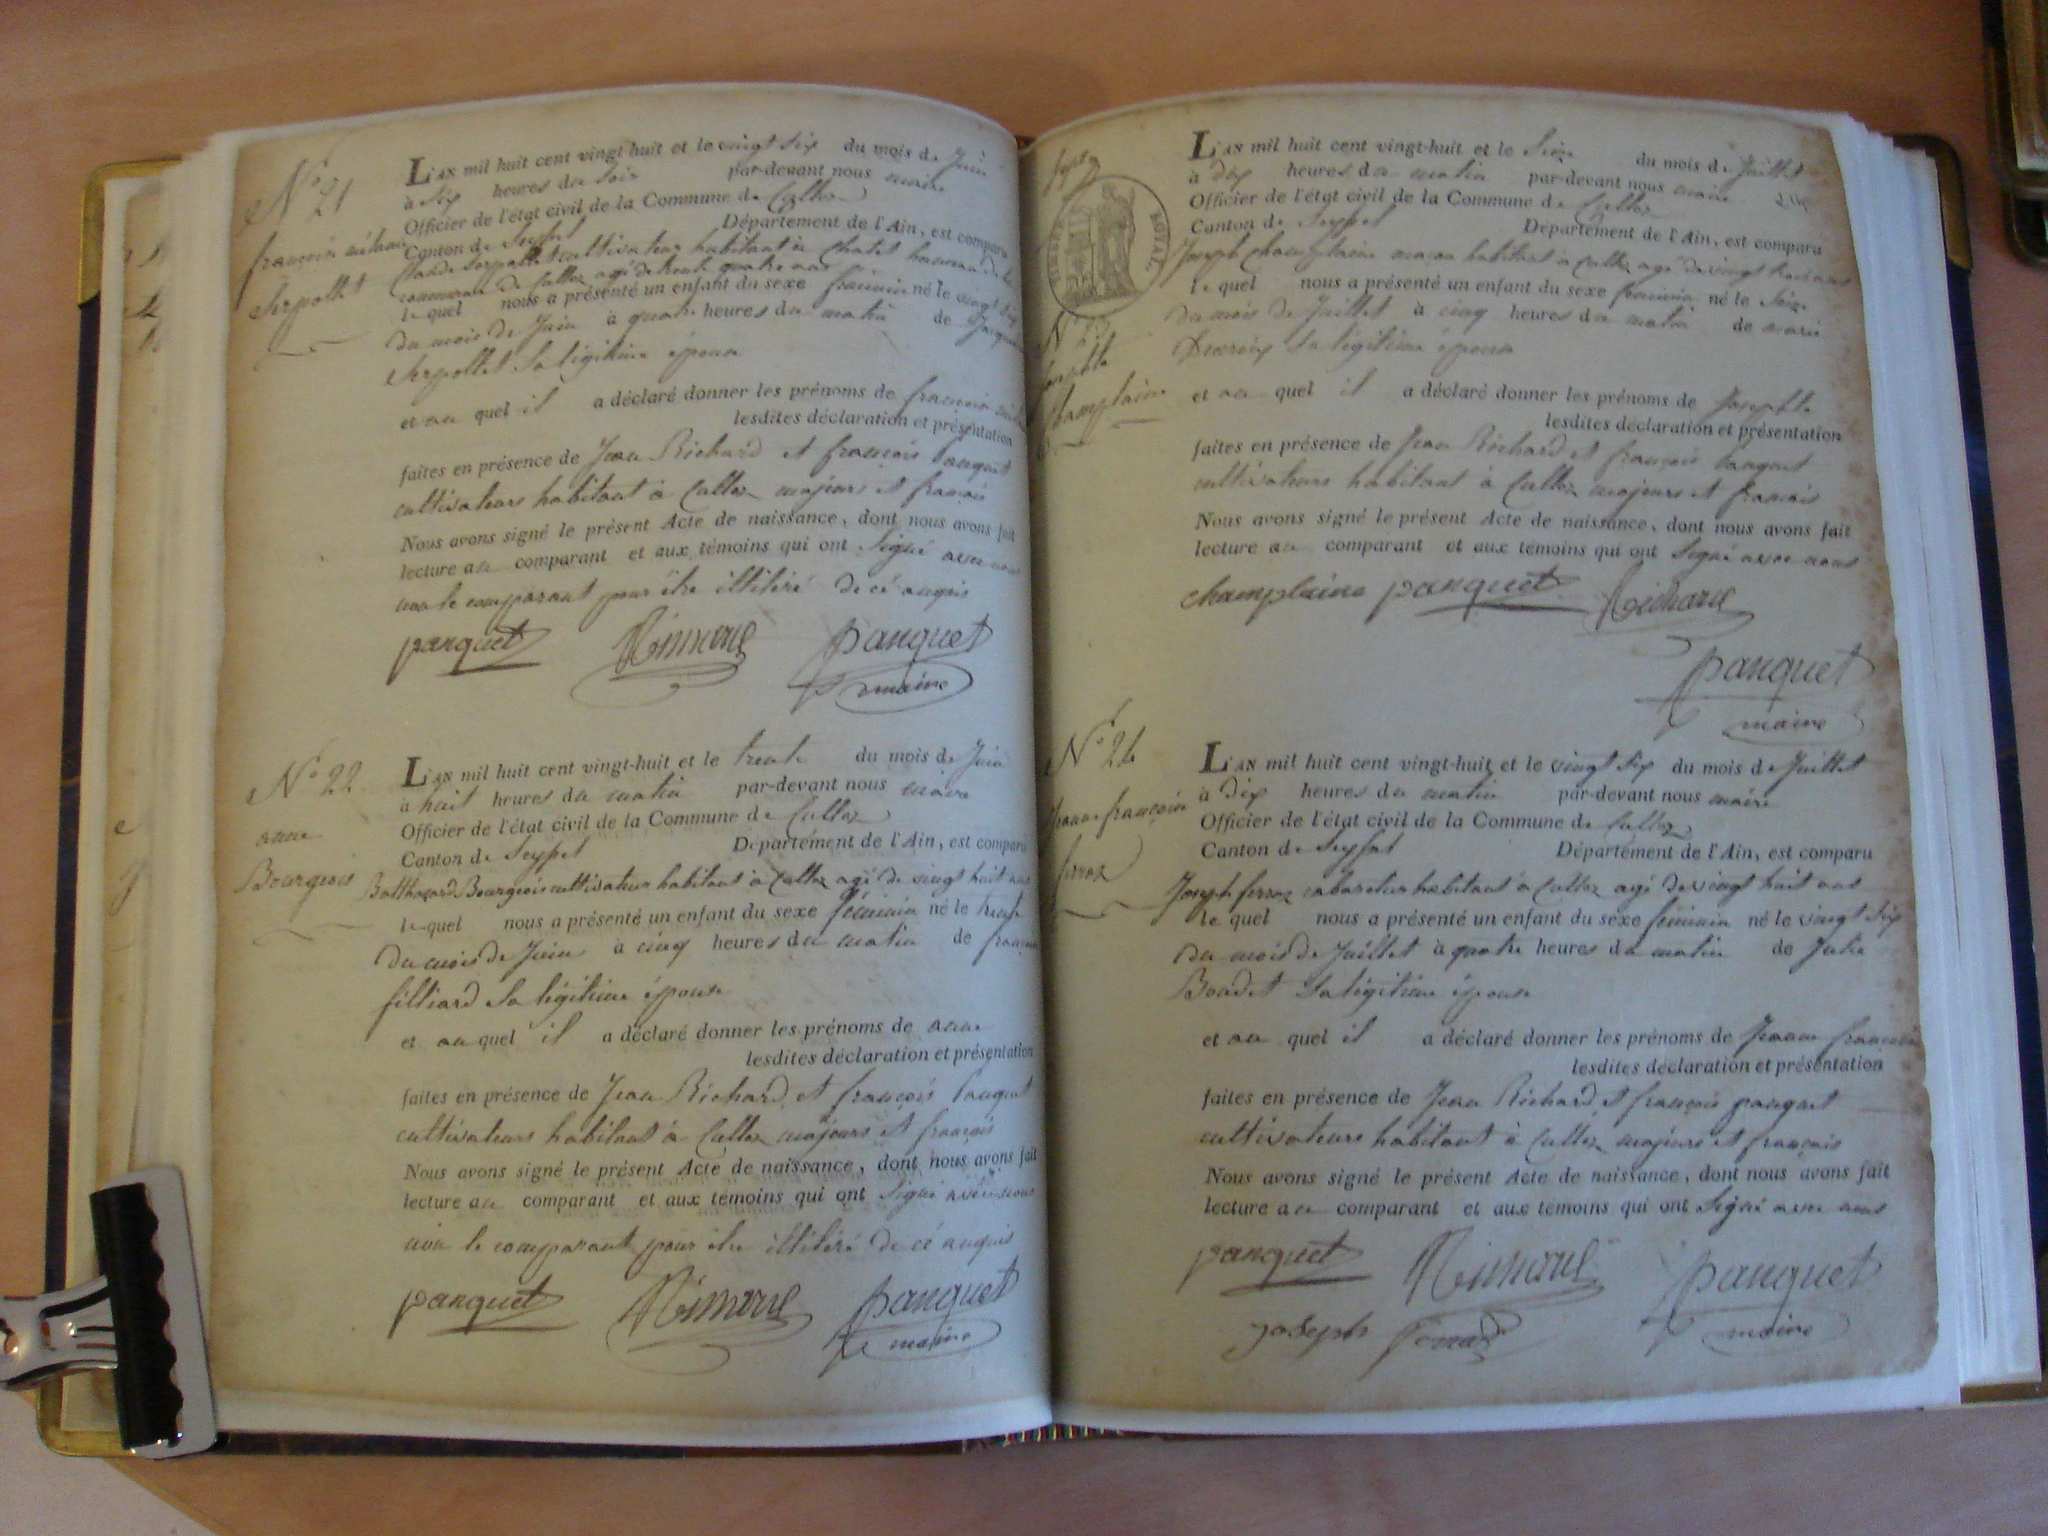 N° 21
françoise
Serpollet
L'AN mil huit cent vingt-huit et le vingt six du mois de Juin
à six heures du soir par-devant nous maire
Officier de l'état civil de la Commune de Culloz
Canton de Seyssel Département de l'Ain, est comparu
Claude Serpollet cultivateur habitant à Chatel hameau de la
commune de Culloz agé de trente quatre ans
le quel nous a présenté un enfant du sexe né le vingt six
du mois de Juin à quatre heures du matin de
Serpollet sa légitime épouse
et au quel il a déclaré donner les prénoms de
lesdites déclaration et présentation
faites en présence de Jean Richard et françois panquet
cultivateurs habitant à Culloz majeurs et français
Nous avons signé le présent Acte de naissance, dont nous avons fait
lecture au comparant et aux témoins qui ont signé avec nous
non le comparant pour être illitéré de ce enquis
panquet Richard panquet
maire
N° 22
anne
Bourgeois
L'AN mil huit cent vingt-huit et le trente du mois de Juin
à huit heures du matin par-devant nous maire
Officier de l'état civil de la Commune de Culloz
Canton de Seyssel Département de l'Ain, est comparu
Balthazard Bourgeois cultivateur habitant à Culloz agé de vingt huit ans
le quel nous a présenté un enfant du sexe féminin né le trente
du mois de Juin à cinq heures du matin de
filliard sa légitime épouse
et au quel il a déclaré donner les prénoms de anne
lesdites déclaration et présentation
faites en présence de Jean Richard et françois panquet
cultivateurs habitant à Culloz majeurs et français
Nous avons signé le présent Acte de naissance, dont nous avons fait
lecture au comparant et aux témoins qui ont signé avec nous
non le comparant pour être illitéré de ce enquis
panquet Richard panquet
maire
TIMBRE ROYAL
N° 23
Josephte
Champlaine
L'AN mil huit cent vingt-huit et le seize du mois de Juillet
à dix heures du matin par-devant nous maire
Officier de l'état civil de la Commune de Culloz
Canton de Seyssel Département de l'Ain, est comparu
Joseph Champlaine maçon habitant à Culloz agé de vingt ans
le quel nous a présenté un enfant du sexe féminin né le seize
du mois de Juillet à cinq heures du matin de marie
sa légitime épouse
et au quel il a déclaré donner les prénoms de Josephte
lesdites déclaration et présentation
faites en présence de Jean Richard et françois panquet
cultivateurs habitant à Culloz majeurs et français
Nous avons signé le présent Acte de naissance, dont nous avons fait
lecture au comparant et aux témoins qui ont signé avec nous
champlaine panquet Richard
panquet
maire
N° 24
Jeanne françoise
ferraz
L'AN mil huit cent vingt-huit et le vingt six du mois de Juillet
à dix heures du matin par-devant nous maire
Officier de l'état civil de la Commune de Culloz
Canton de Seyssel Département de l'Ain, est comparu
Joseph ferraz cabaretier habitant à Culloz agé de vingt huit ans
le quel nous a présenté un enfant du sexe féminin né le vingt six
du mois de Juillet à quatre heures du matin de Julie
Boudet sa légitime épouse
et au quel il a déclaré donner les prénoms de Jeanne françoise
lesdites déclaration et présentation
faites en présence de Jean Richard et françois panquet
cultivateurs habitant à Culloz majeurs et français
Nous avons signé le présent Acte de naissance, dont nous avons fait
lecture au comparant et aux témoins qui ont signé avec nous
panquet Richard panquet
joseph ferraz maire